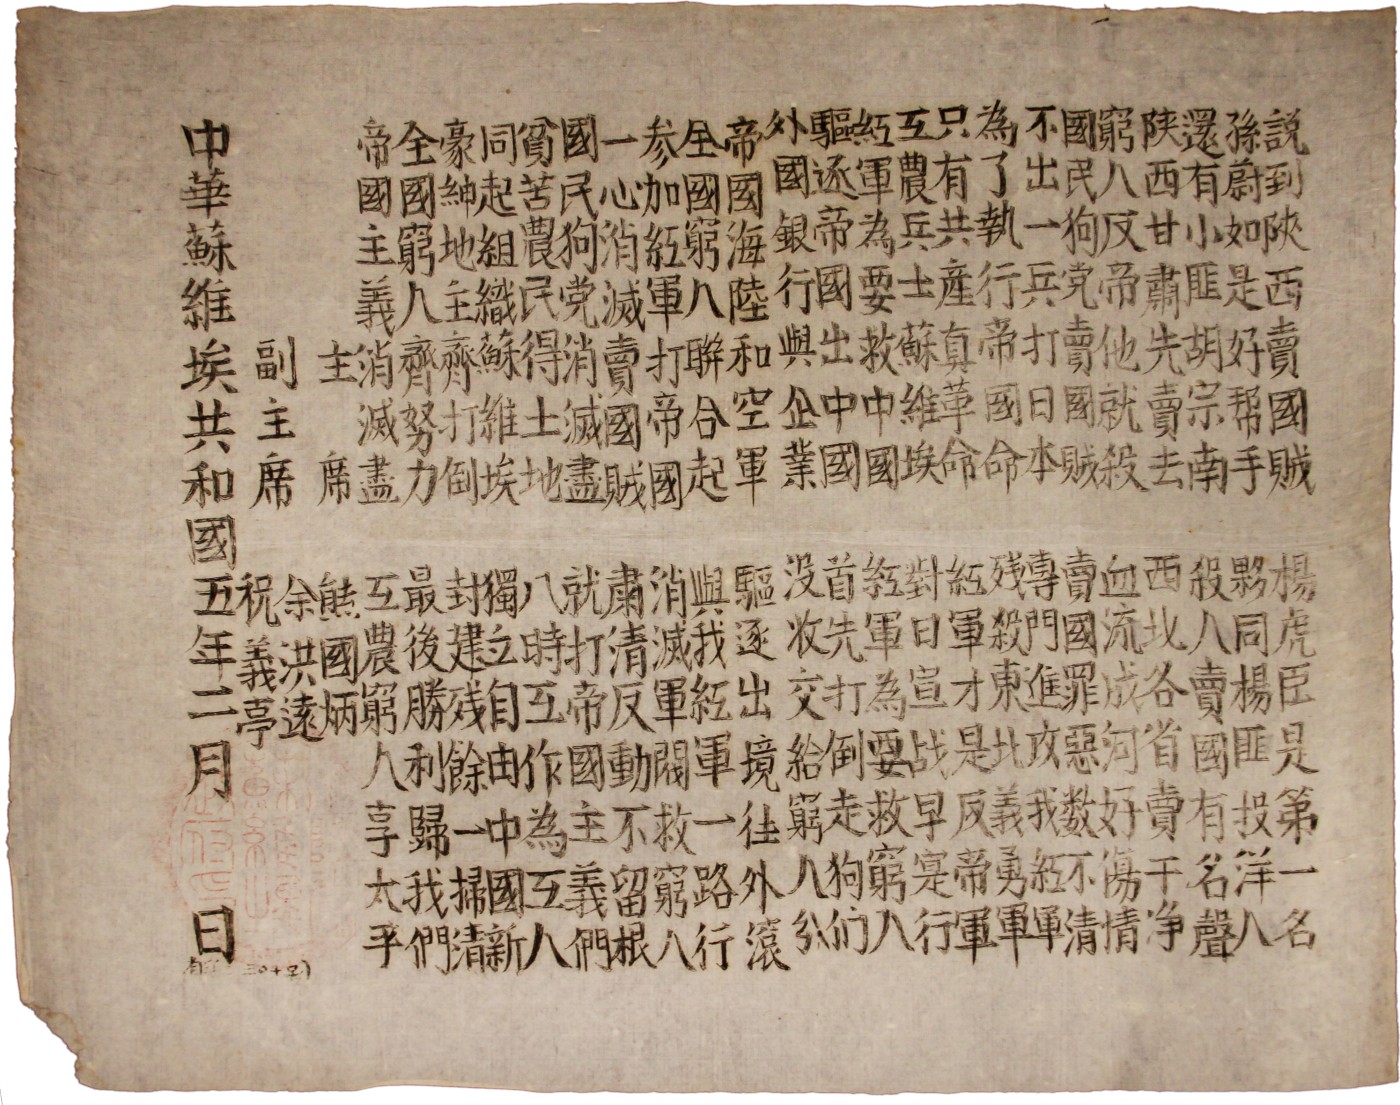 説到陝西賣國賊 楊虎臣是第一名
孫蔚如是好帮手 夥同楊匪投洋人
還有小匪胡宗南 殺人賣國有名聲
陝西甘肅先賣去 西北各省賣干净
窮人反帝他就殺 血流成河好傷情
國民狗党賣國賊 賣國罪惡数不清
不出一兵打日本 專門進攻我紅軍
為了執行帝國命 残殺東北義勇軍
只有共産真革命 紅軍才是反帝軍
工農兵士蘇維埃 對日宣战早寔行
紅軍為要救中國 紅軍為要救窮人
驅逐帝國出中國 首先打倒走狗们
外國銀行與企業 没收交給窮人分
帝國海陸和空軍 驅逐出境往外滾
全國窮人聯合起 與我紅軍一路行
参加紅軍打帝國 消滅軍閥救窮人
一心消滅賣國賊 肅清反動不留根
國民狗党消滅盡 就打帝國主義們
貧苦農民得土地 八時工作為工人
同起組織蘇維埃 獨立自由中國新
豪紳地主齊打倒 封建残餘一掃清
全國窮人齊努力 最後勝利歸我們
帝國主義消滅盡 工農窮人享太平
主席 熊國炳
副主席 余洪遠
祝義亭
中華蘇維埃共和國五年二月 日